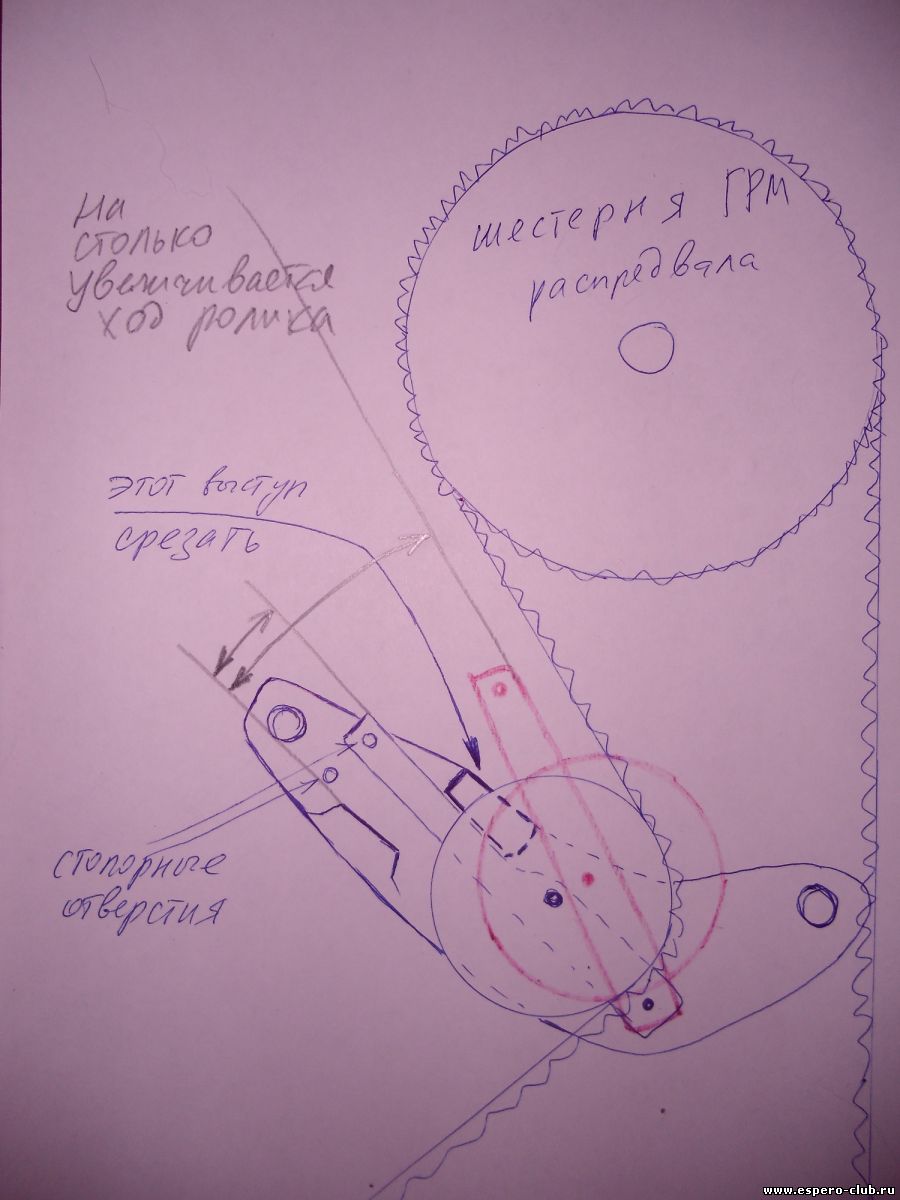 На
столько
увеличивается
ход ролика
шестерня ГРМ
распредвала
этот выступ
срезать
стопорные
отверстия
www.espero-club.ru